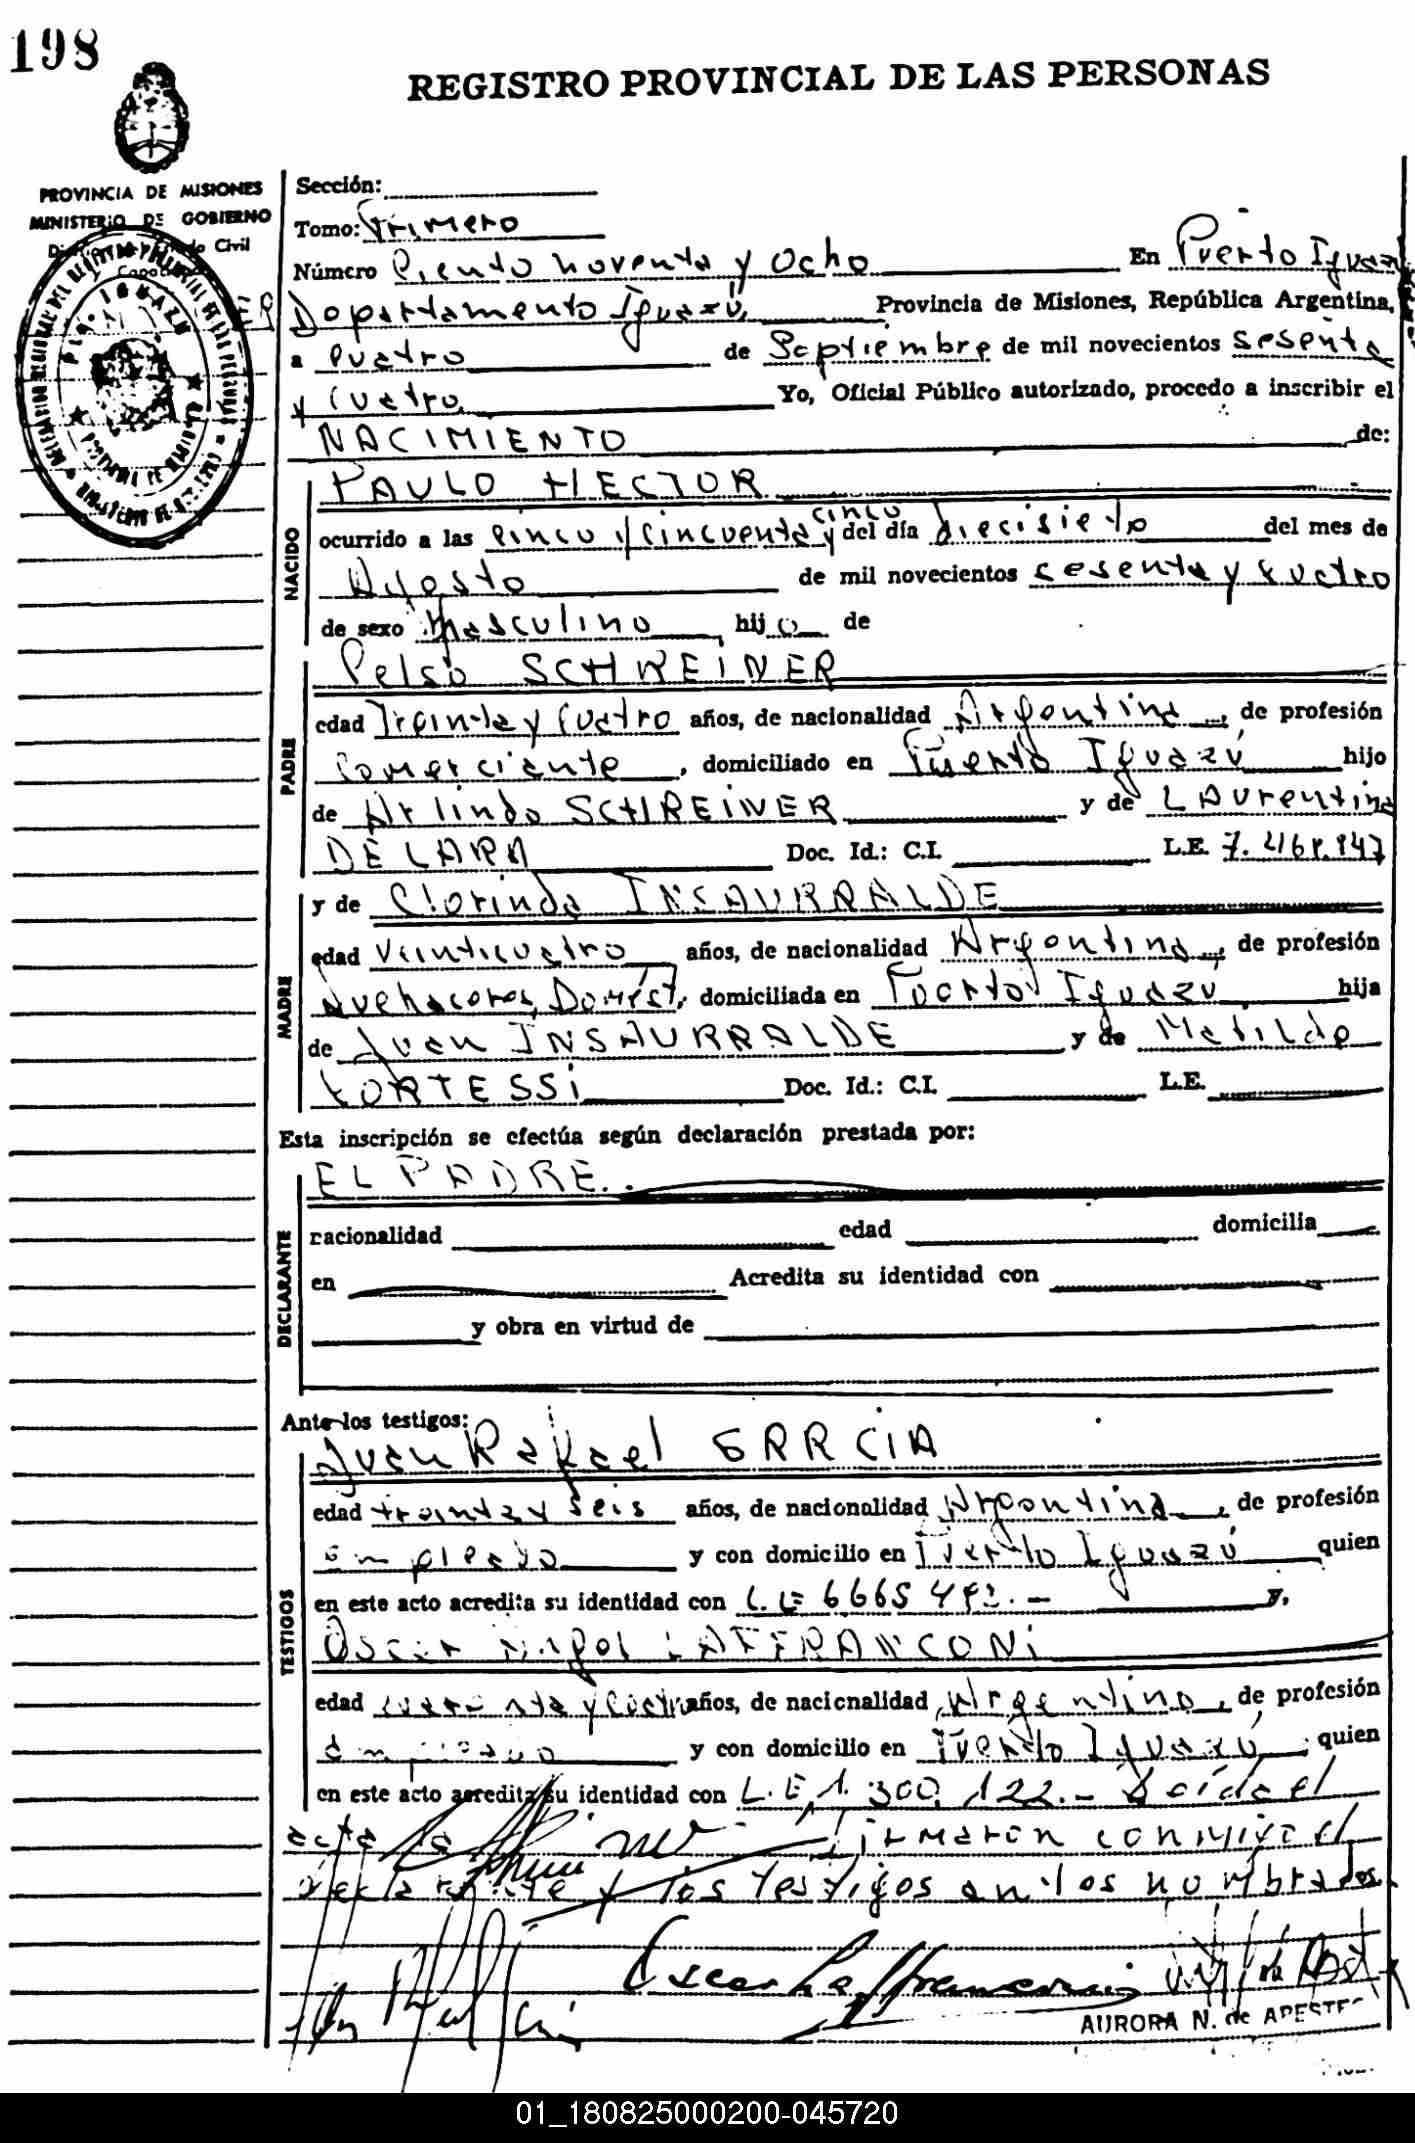 198
REGISTRO PROVINCIAL DE LAS PERSONAS
PROVINCIA DE MISIONES
MINISTERIO DE GOBIERNO
Civil
Sección:
Tomo: Primero
Número Ciento noventa y ocho En Puerto Iguazú
Departamento Iguazú, Provincia de Misiones, República Argentina,
a cuatro de Septiembre de mil novecientos sesenta
y cuatro, Yo, Oficial Público autorizado, procedo a inscribir el
NACIMIENTO de:
NACIDO
PAULO HECTOR
ocurrido a las cinco y cincuenta y cinco del día diecisiete del mes de
Agosto de mil novecientos sesenta y cuatro
de sexo Masculino, hijo de
PADRE
Celso SCHREINER
edad Treinta y cuatro años, de nacionalidad Argentina, de profesión
Comerciante, domiciliado en Puerto Iguazú hijo
de Arlindo SCHREINER y de Laurentina
DE LARA Doc. Id.: C.I. L.E.
MADRE
y de Clorinda INSAURRALDE
edad veinticuatro años, de nacionalidad Argentina, de profesión
Quehaceres Domést, domiciliada en Puerto Iguazú hija
de Juan INSAURRALDE y de Matilde
CORTESSI Doc. Id.: C.I. L.E.
Esta inscripción se efectúa según declaración prestada por:
DECLARANTE
EL PADRE.
nacionalidad edad domicilia
en Acredita su identidad con
y obra en virtud de
Ante los testigos:
TESTIGOS
Juan Rafael GARCIA
edad treinta y seis años, de nacionalidad Argentina, de profesión
empleado y con domicilio en Puerto Iguazú quien
en este acto acredita su identidad con L.E 6665 y,
Oscar LAFFRANCONI
edad años, de nacionalidad Argentina, de profesión
empleado y con domicilio en Puerto Iguazú, quien
en este acto acredita su identidad con L.E. 1.300.122.- Leída el
acta la firmaron conmigo el
declarante y los testigos antes nombrados.
Oscar Laffranconi
AURORA N. de
01_180825000200-045720